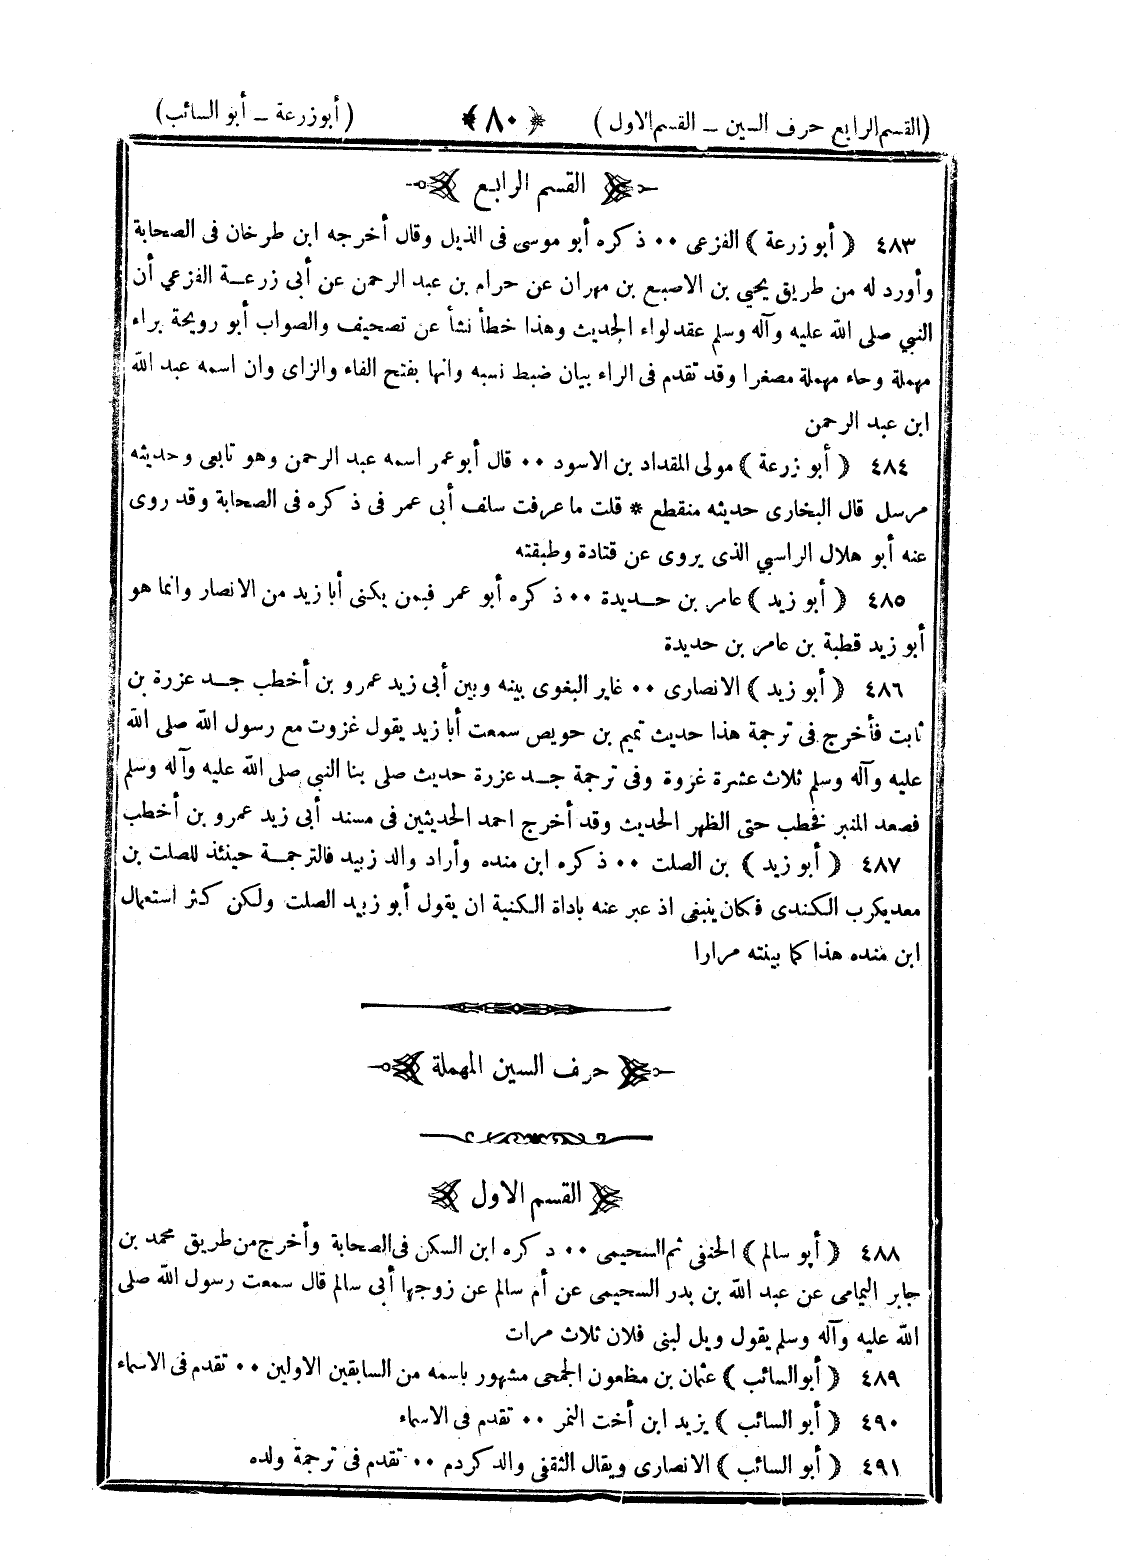 (القسم الرابع حرف السين ــ القسم الاول) ﴿ ٨٠ ﴾ (أبو زرعة ــ أبو السائب)
القسم الرابع
٤٨٣ ﴿ أبو زرعة ﴾ الفزعى ٠٠ ذكره أبو موسى فى الذيل وقال أخرجه ابن طرخان فى الصحابة
وأورد له من طريق يحيى بن الاصبع بن مهران عن حرام بن عبد الرحمن عن أبى زرعــة الفزعي أن
النبي صلى الله عليه وآله وسلم عقد لواء الحديث وهذا خطأ نشأ عن تصحيف والصواب أبو رويحة براء
مهملة وحاء مهملة مصغرا وقد تقدم فى الراء بيان ضبط نسبه وانها بفتح الفاء والزاى وان اسمه عبد الله
ابن عبد الرحمن
٤٨٤ ﴿ أبو زرعة ﴾ مولى المقداد بن الاسود ٠٠ قال أبو عمر اسمه عبد الرحمن وهو تابعى وحديثه
مرسل قال البخارى حديثه منقطع * قلت ما عرفت سلف أبى عمر فى ذكره فى الصحابة وقد روى
عنه أبو هلال الراسبي الذى يروى عن قتادة وطبقته
٤٨٥ ﴿ أبو زيد ﴾ عامر بن حــديدة ٠٠ ذكره أبو عمر فيمن يكنى أبا زيد من الانصار وانما هو
أبو زيد قطبة بن عامر بن حديدة
٤٨٦ ﴿ أبو زيد ﴾ الانصارى ٠٠ غاير البغوى بينه وبين أبى زيد عمرو بن أخطب جــد عزرة بن
ثابت فأخرج فى ترجمة هذا حديث تميم بن حويص سمعت أبا زيد يقول غزوت مع رسول الله صلى الله
عليه وآله وسلم ثلاث عشرة غزوة وفى ترجمة جــد عزرة حديث صلى بنا النبى صلى الله عليه وآله وسلم
فصعد المنبر فخطب حتى الظهر الحديث وقد أخرج احمد الحديثين فى مسند أبى زيد عمرو بن أخطب
٤٨٧ ﴿ أبو زيد ﴾ بن الصلت ٠٠ ذكره ابن منده وأراد والد زبيد فالترجمــة حينئذ للصلت بن
معديكرب الكندى فكان ينبغى اذ عبر عنه باداة الكنية ان يقول أبو زبيد الصلت ولكن كثر استعمال
ابن منده هذا كما بينته مرارا
حرف السين المهملة
القسم الاول
٤٨٨ ﴿ أبو سالم ﴾ الحنفى ثم السحيمى ٠٠ ذكره ابن السكن فى الصحابة وأخرج من طريق محمد بن
جابر اليمامى عن عبد الله بن بدر السحيمى عن أم سالم عن زوجها أبى سالم قال سمعت رسول الله صلى
الله عليه وآله وسلم يقول ويل لبنى فلان ثلاث مرات
٤٨٩ ﴿ أبو السائب ﴾ عثمان بن مظعون الجمحى مشهور باسمه من السابقين الاولين ٠٠ تقدم فى الاسماء
٤٩٠ ﴿ أبو السائب ﴾ يزيد ابن أخت النمر ٠٠ تقدم فى الاسماء
٤٩١ ﴿ أبو السائب ﴾ الانصارى ويقال الثقفى والد كردم ٠٠ تقدم فى ترجمة ولده